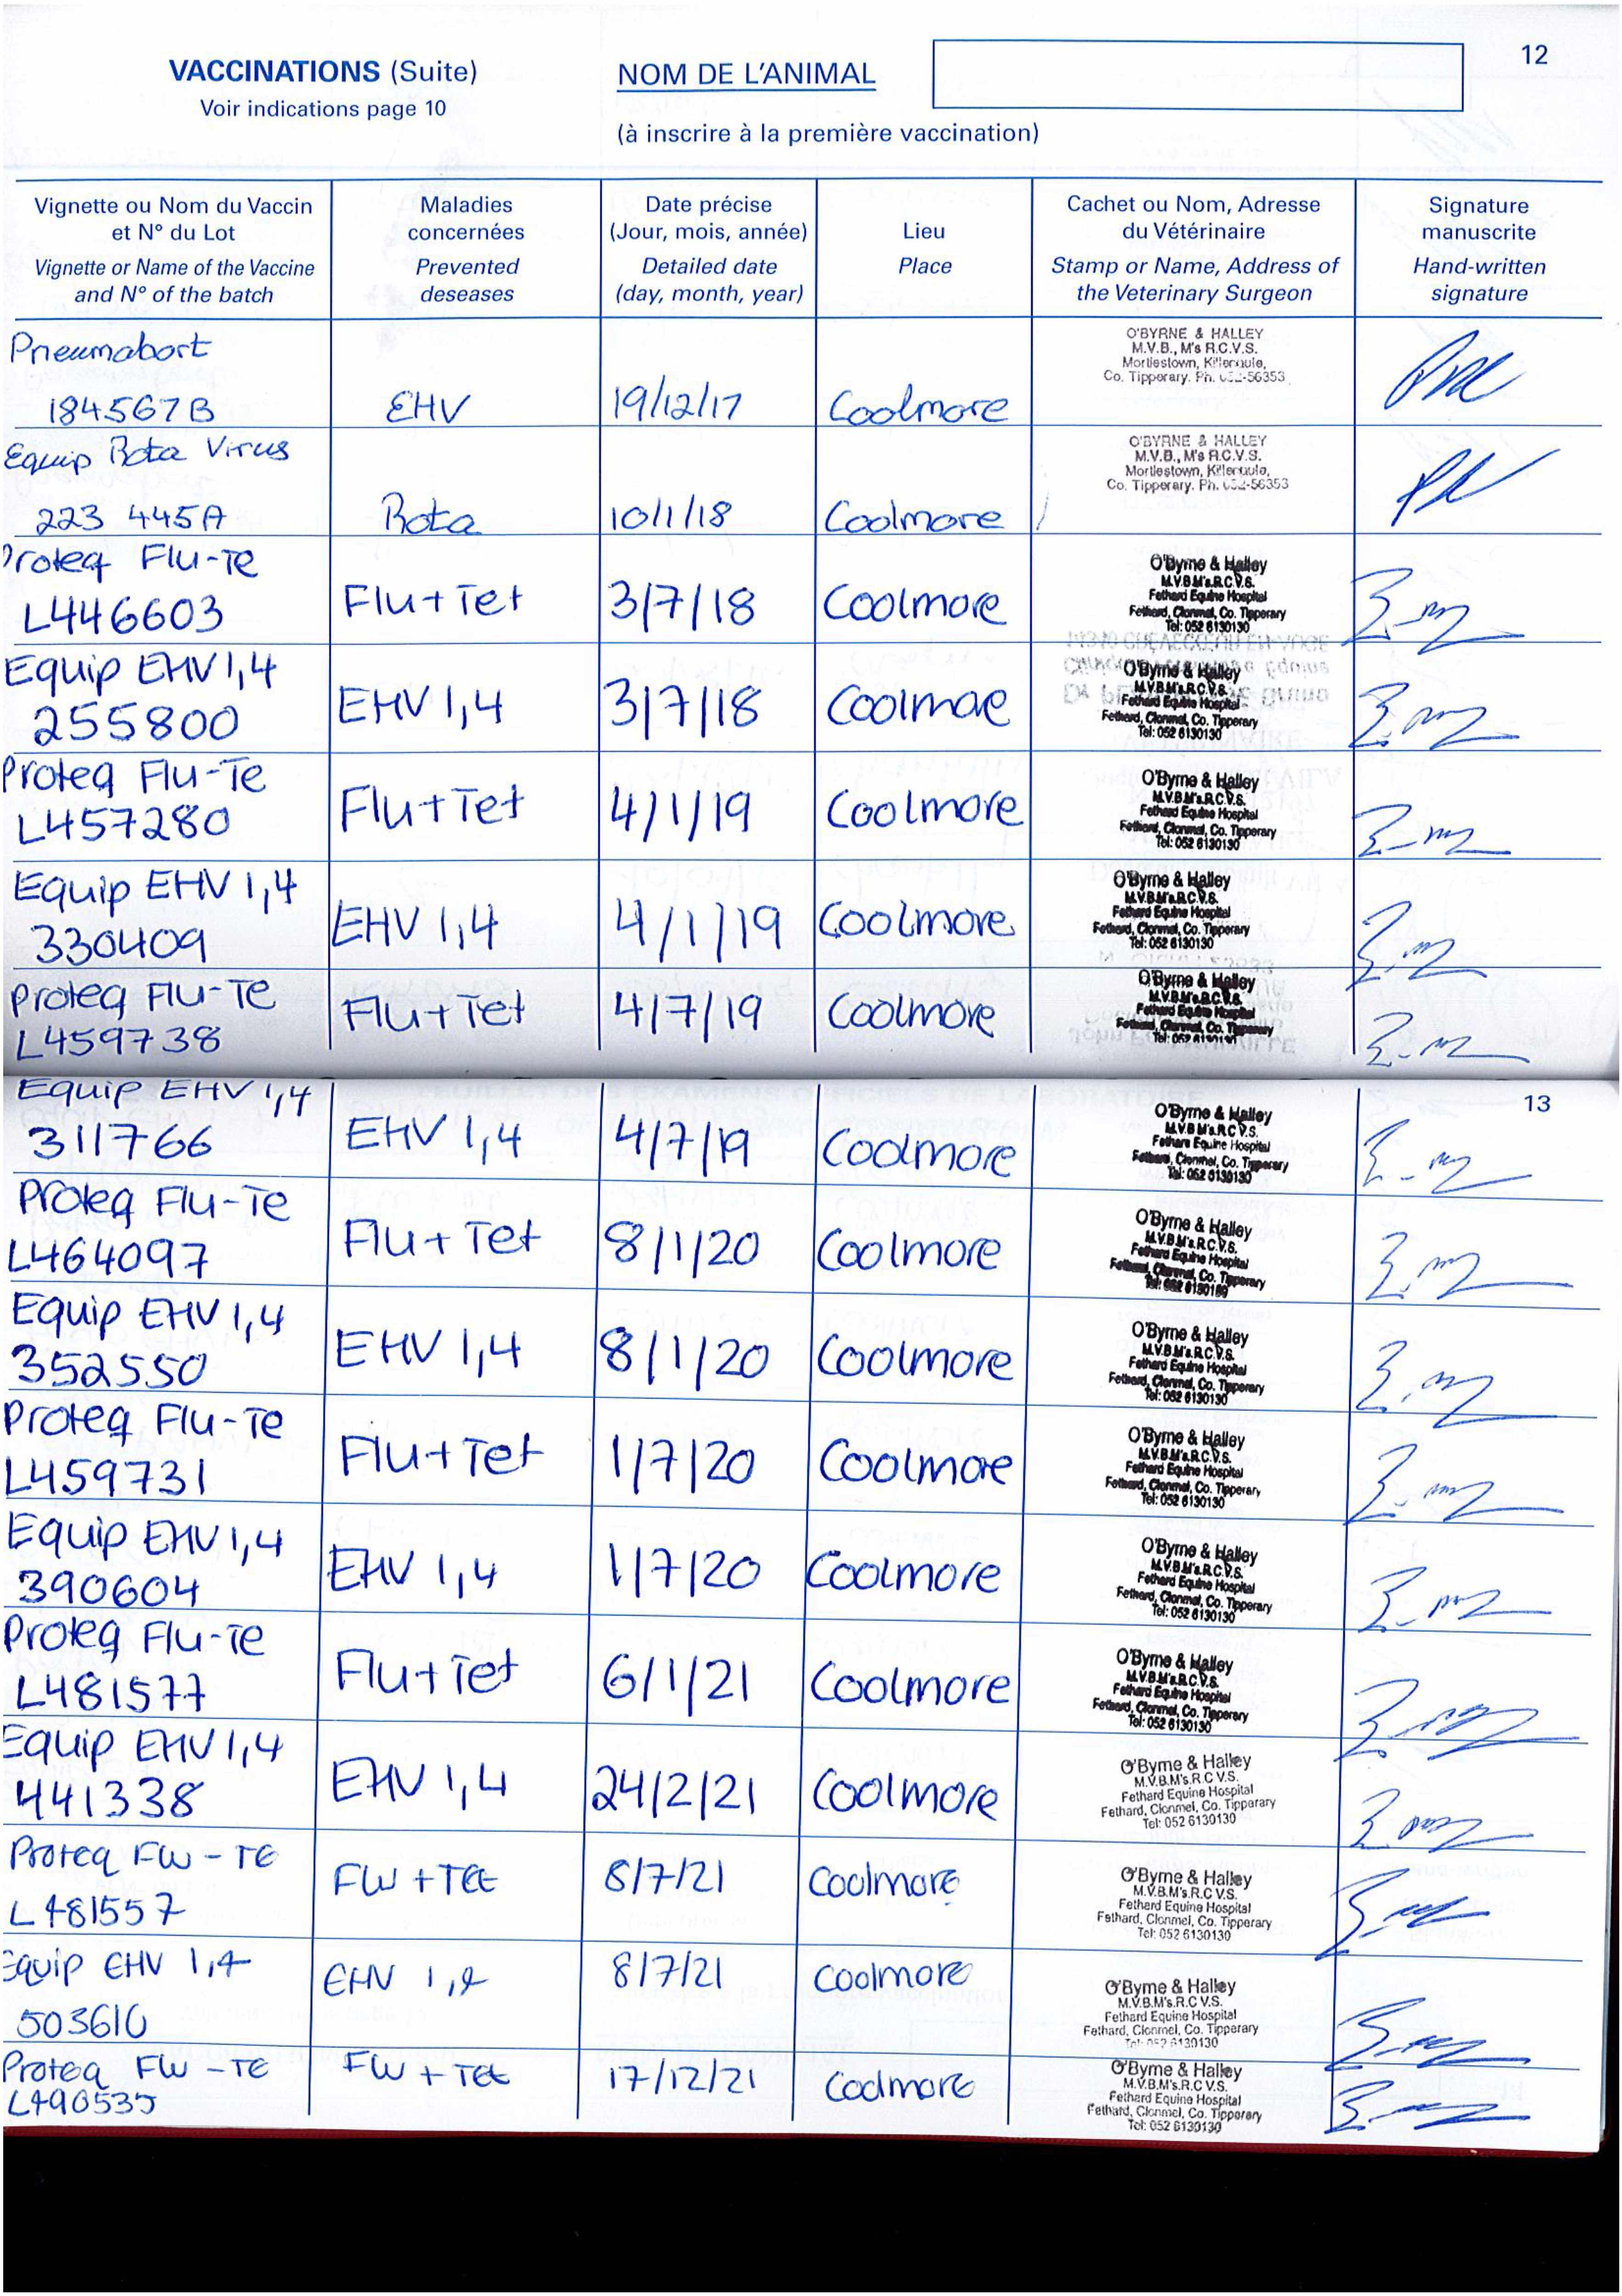 12
VACCINATIONS (Suite)
Voir indications page 10
NOM DE L'ANIMAL
(à inscrire à la première vaccination)
Vignette ou Nom du Vaccin et N° du Lot
Vignette or Name of the Vaccine and N° of the batch
Maladies concernées
Prevented deseases
Date précise (Jour, mois, année)
Detailed date (day, month, year)
Lieu
Place
Cachet ou Nom, Adresse du Vétérinaire
Stamp or Name, Address of the Veterinary Surgeon
Signature manuscrite
Hand-written signature
Pneumabort
184567B
EHV
19/12/17
Coolmore
O'BYRNE & HALLEY
M.V.B., M's R.C.V.S.
Mortlestown, Killenaule,
Co. Tipperary. Ph. 052-56353
Equip Rota Virus
223 445A
Rota
10/1/18
Coolmore
O'BYRNE & HALLEY
M.V.B., M's R.C.V.S.
Mortlestown, Killenaule,
Co. Tipperary. Ph. 052-56353
Proteq Flu-Te
L446603
Flu+Tet
3/7/18
Coolmore
O'Byrne & Halley
M.V.B.M's.R.C.V.S.
Fethard Equine Hospital
Fethard, Clonmel, Co. Tipperary
Tel: 052 6130130
Equip EHV 1,4
255800
EHV 1,4
3/7/18
Coolmore
O'Byrne & Halley
M.V.B.M's.R.C.V.S.
Fethard Equine Hospital
Fethard, Clonmel, Co. Tipperary
Tel: 052 6130130
Proteq Flu-Te
L457280
Flu+Tet
4/1/19
Coolmore
O'Byrne & Halley
M.V.B.M's.R.C.V.S.
Fethard Equine Hospital
Fethard, Clonmel, Co. Tipperary
Tel: 052 6130130
Equip EHV 1,4
330409
EHV 1,4
4/1/19
Coolmore
O'Byrne & Halley
M.V.B.M's.R.C.V.S.
Fethard Equine Hospital
Fethard, Clonmel, Co. Tipperary
Tel: 052 6130130
Proteq Flu-Te
L459738
Flu+Tet
4/7/19
Coolmore
O'Byrne & Halley
M.V.B.M's.R.C.V.S.
Fethard Equine Hospital
Fethard, Clonmel, Co. Tipperary
Tel: 052 6130130
13
Equip EHV 1,4
311766
EHV 1,4
4/7/19
Coolmore
O'Byrne & Halley
M.V.B.M's.R.C.V.S.
Fethard Equine Hospital
Fethard, Clonmel, Co. Tipperary
Tel: 052 6130130
Proteq Flu-Te
L464097
Flu+Tet
8/1/20
Coolmore
O'Byrne & Halley
M.V.B.M's.R.C.V.S.
Fethard Equine Hospital
Fethard, Clonmel, Co. Tipperary
Tel: 052 6130130
Equip EHV 1,4
352550
EHV 1,4
8/1/20
Coolmore
O'Byrne & Halley
M.V.B.M's.R.C.V.S.
Fethard Equine Hospital
Fethard, Clonmel, Co. Tipperary
Tel: 052 6130130
Proteq Flu-Te
L459731
Flu+Tet
1/7/20
Coolmore
O'Byrne & Halley
M.V.B.M's.R.C.V.S.
Fethard Equine Hospital
Fethard, Clonmel, Co. Tipperary
Tel: 052 6130130
Equip EHV 1,4
390604
EHV 1,4
1/7/20
Coolmore
O'Byrne & Halley
M.V.B.M's.R.C.V.S.
Fethard Equine Hospital
Fethard, Clonmel, Co. Tipperary
Tel: 052 6130130
Proteq Flu-Te
L481577
Flu+Tet
6/1/21
Coolmore
O'Byrne & Halley
M.V.B.M's.R.C.V.S.
Fethard Equine Hospital
Fethard, Clonmel, Co. Tipperary
Tel: 052 6130130
Equip EHV 1,4
441338
EHV 1,4
24/2/21
Coolmore
O'Byrne & Halley
M.V.B.M's.R.C V.S.
Fethard Equine Hospital
Fethard, Clonmel, Co. Tipperary
Tel: 052 6130130
Proteq Flu-TE
L481557
Flu+Tet
8/7/21
Coolmore
O'Byrne & Halley
M.V.B.M's.R.C V.S.
Fethard Equine Hospital
Fethard, Clonmel, Co. Tipperary
Tel: 052 6130130
Equip EHV 1,4
503610
EHV 1,4
8/7/21
Coolmore
O'Byrne & Halley
M.V.B.M's.R.C V.S.
Fethard Equine Hospital
Fethard, Clonmel, Co. Tipperary
Tel: 052 6130130
Proteq Flu-TE
L490535
Flu+Tet
17/12/21
Coolmore
O'Byrne & Halley
M.V.B.M's.R.C V.S.
Fethard Equine Hospital
Fethard, Clonmel, Co. Tipperary
Tel: 052 6130130